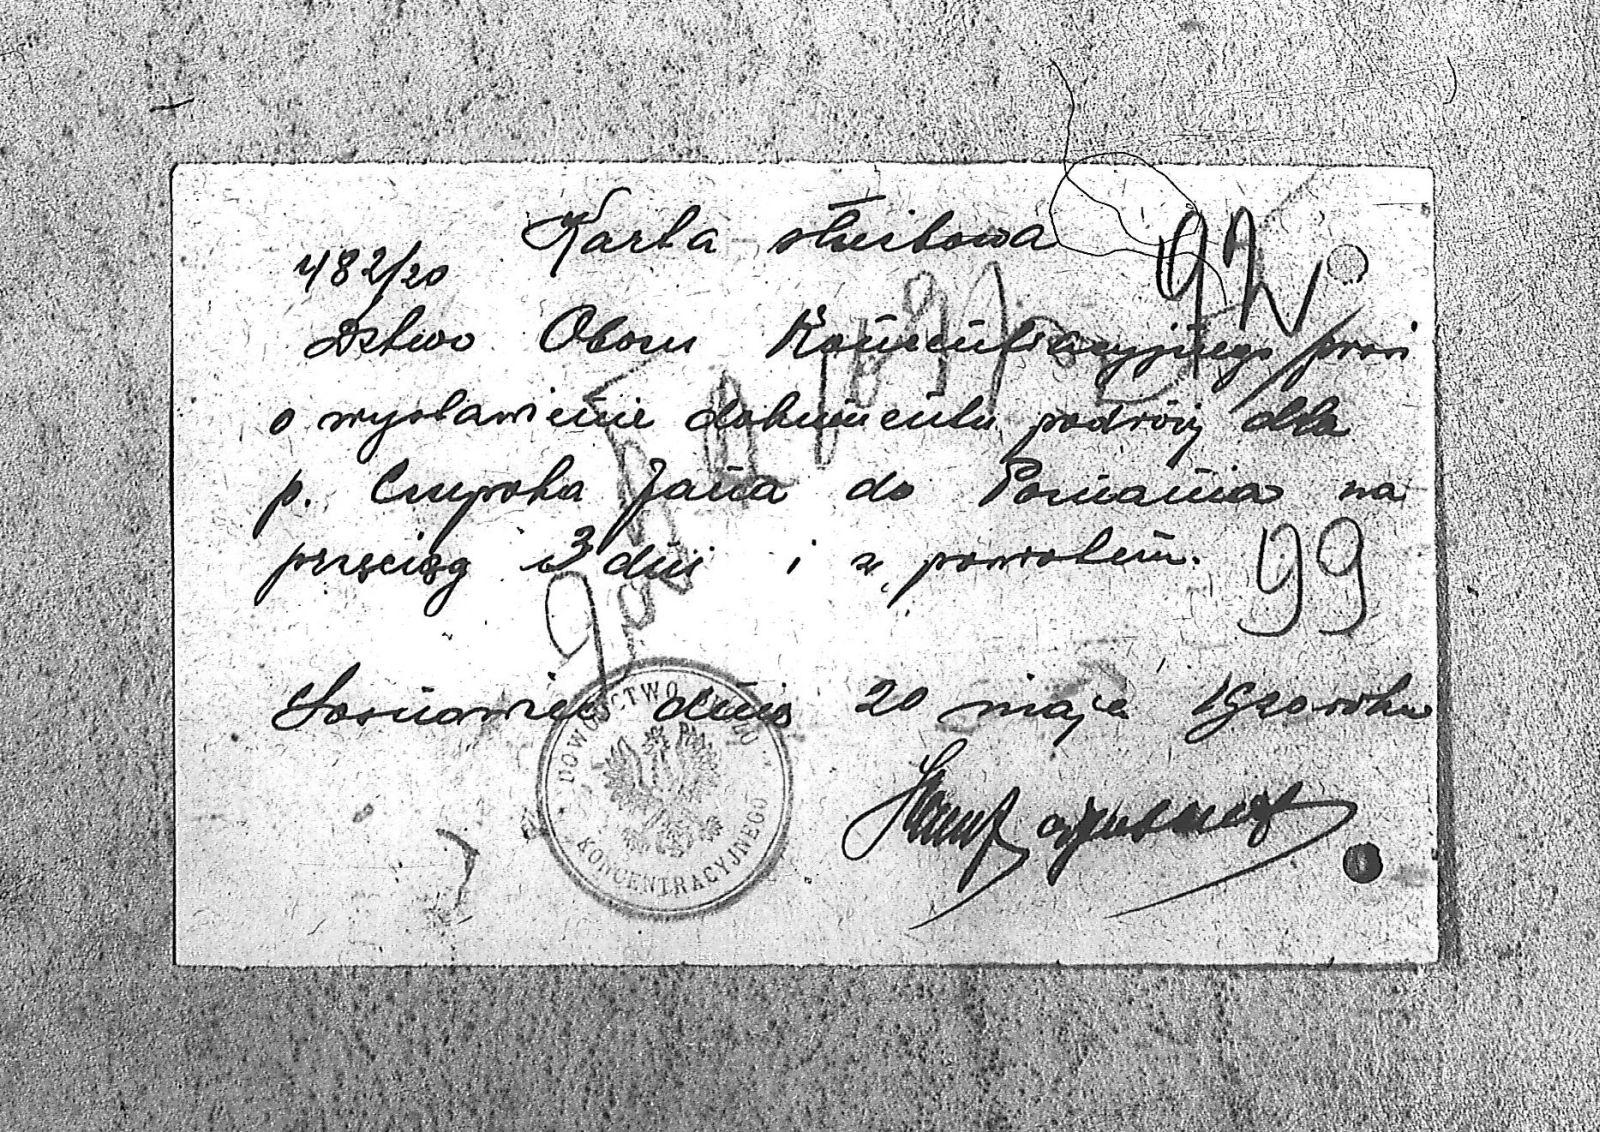 Karta służbowa
482/20
97
Dztwo Obozu Koncentracyjnego prosi
o wystawienie dokumentu podróży dla
p. Czupoka Jana do Poznania na
przeciąg 3 dni i z powrotem.
99
Sosnowiec dnia 20 maja 1920 roku
DOWÓDZTWO OBOZU
KONCENTRACYJNEGO